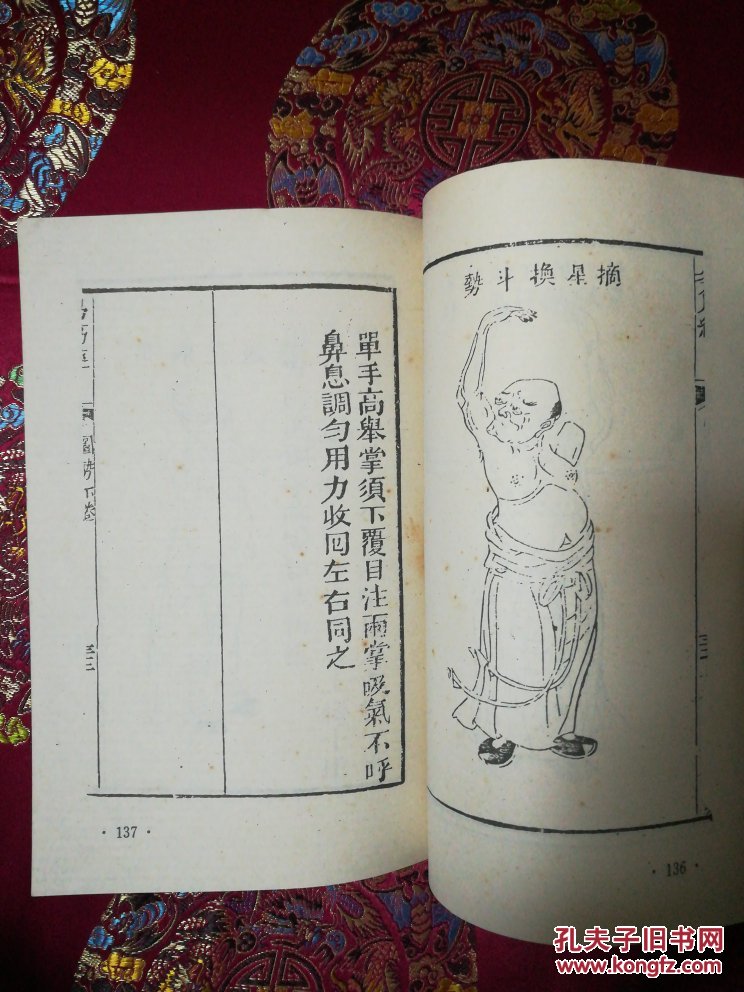 摘星換斗勢
· 136 ·
單手高舉掌須下覆目注兩掌吸氣不呼
鼻息調勻用力收囬左右同之
下卷
· 137 ·
孔夫子旧书网
www.kongfz.com